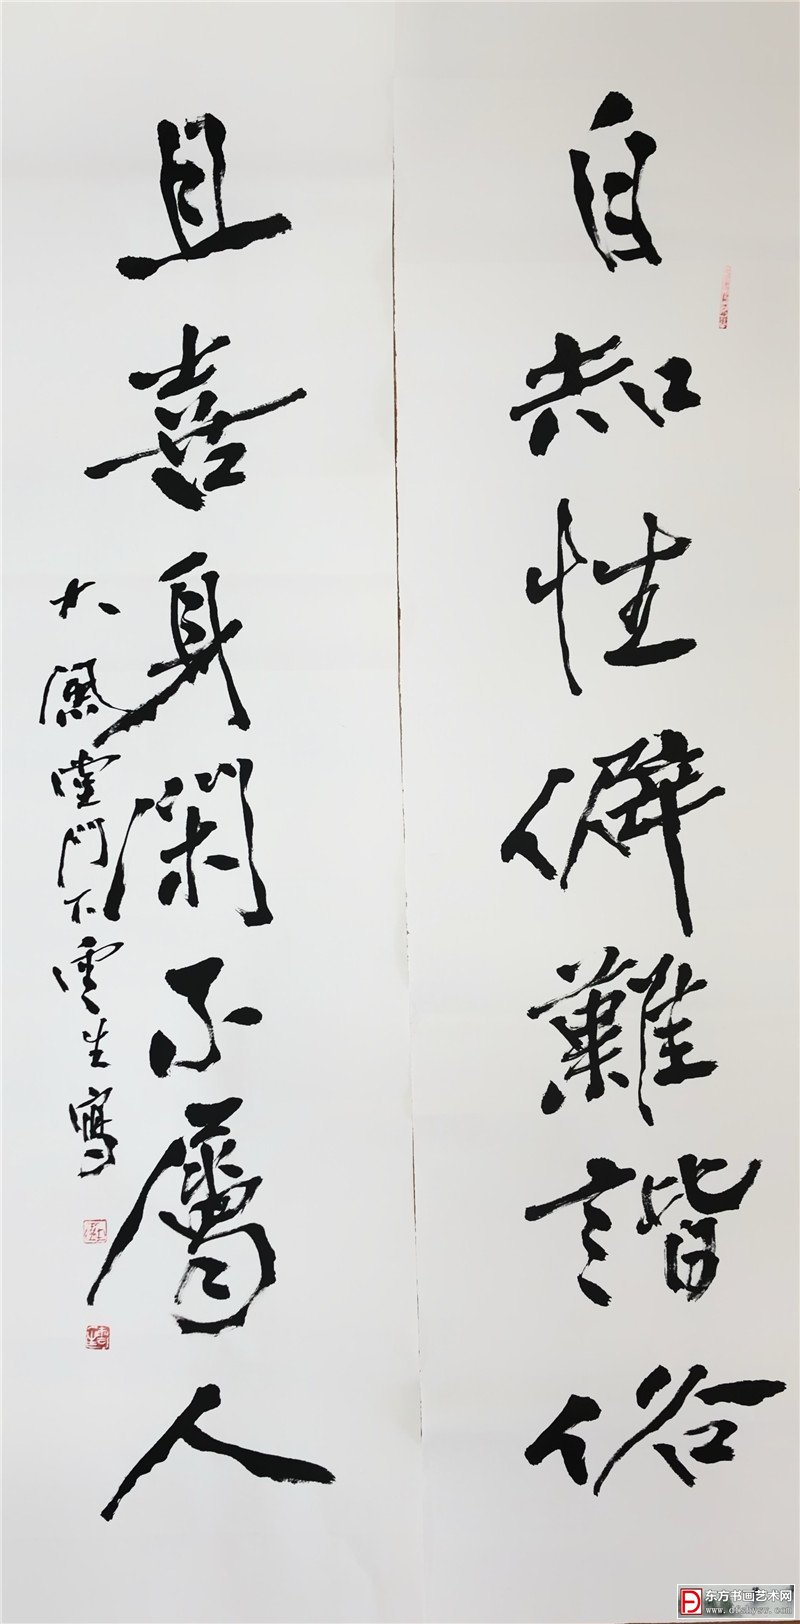 自知性僻難諧俗
且喜身閑不屬人
大風堂門下雲生寫
东方书画艺术网
www.dfshysw.com